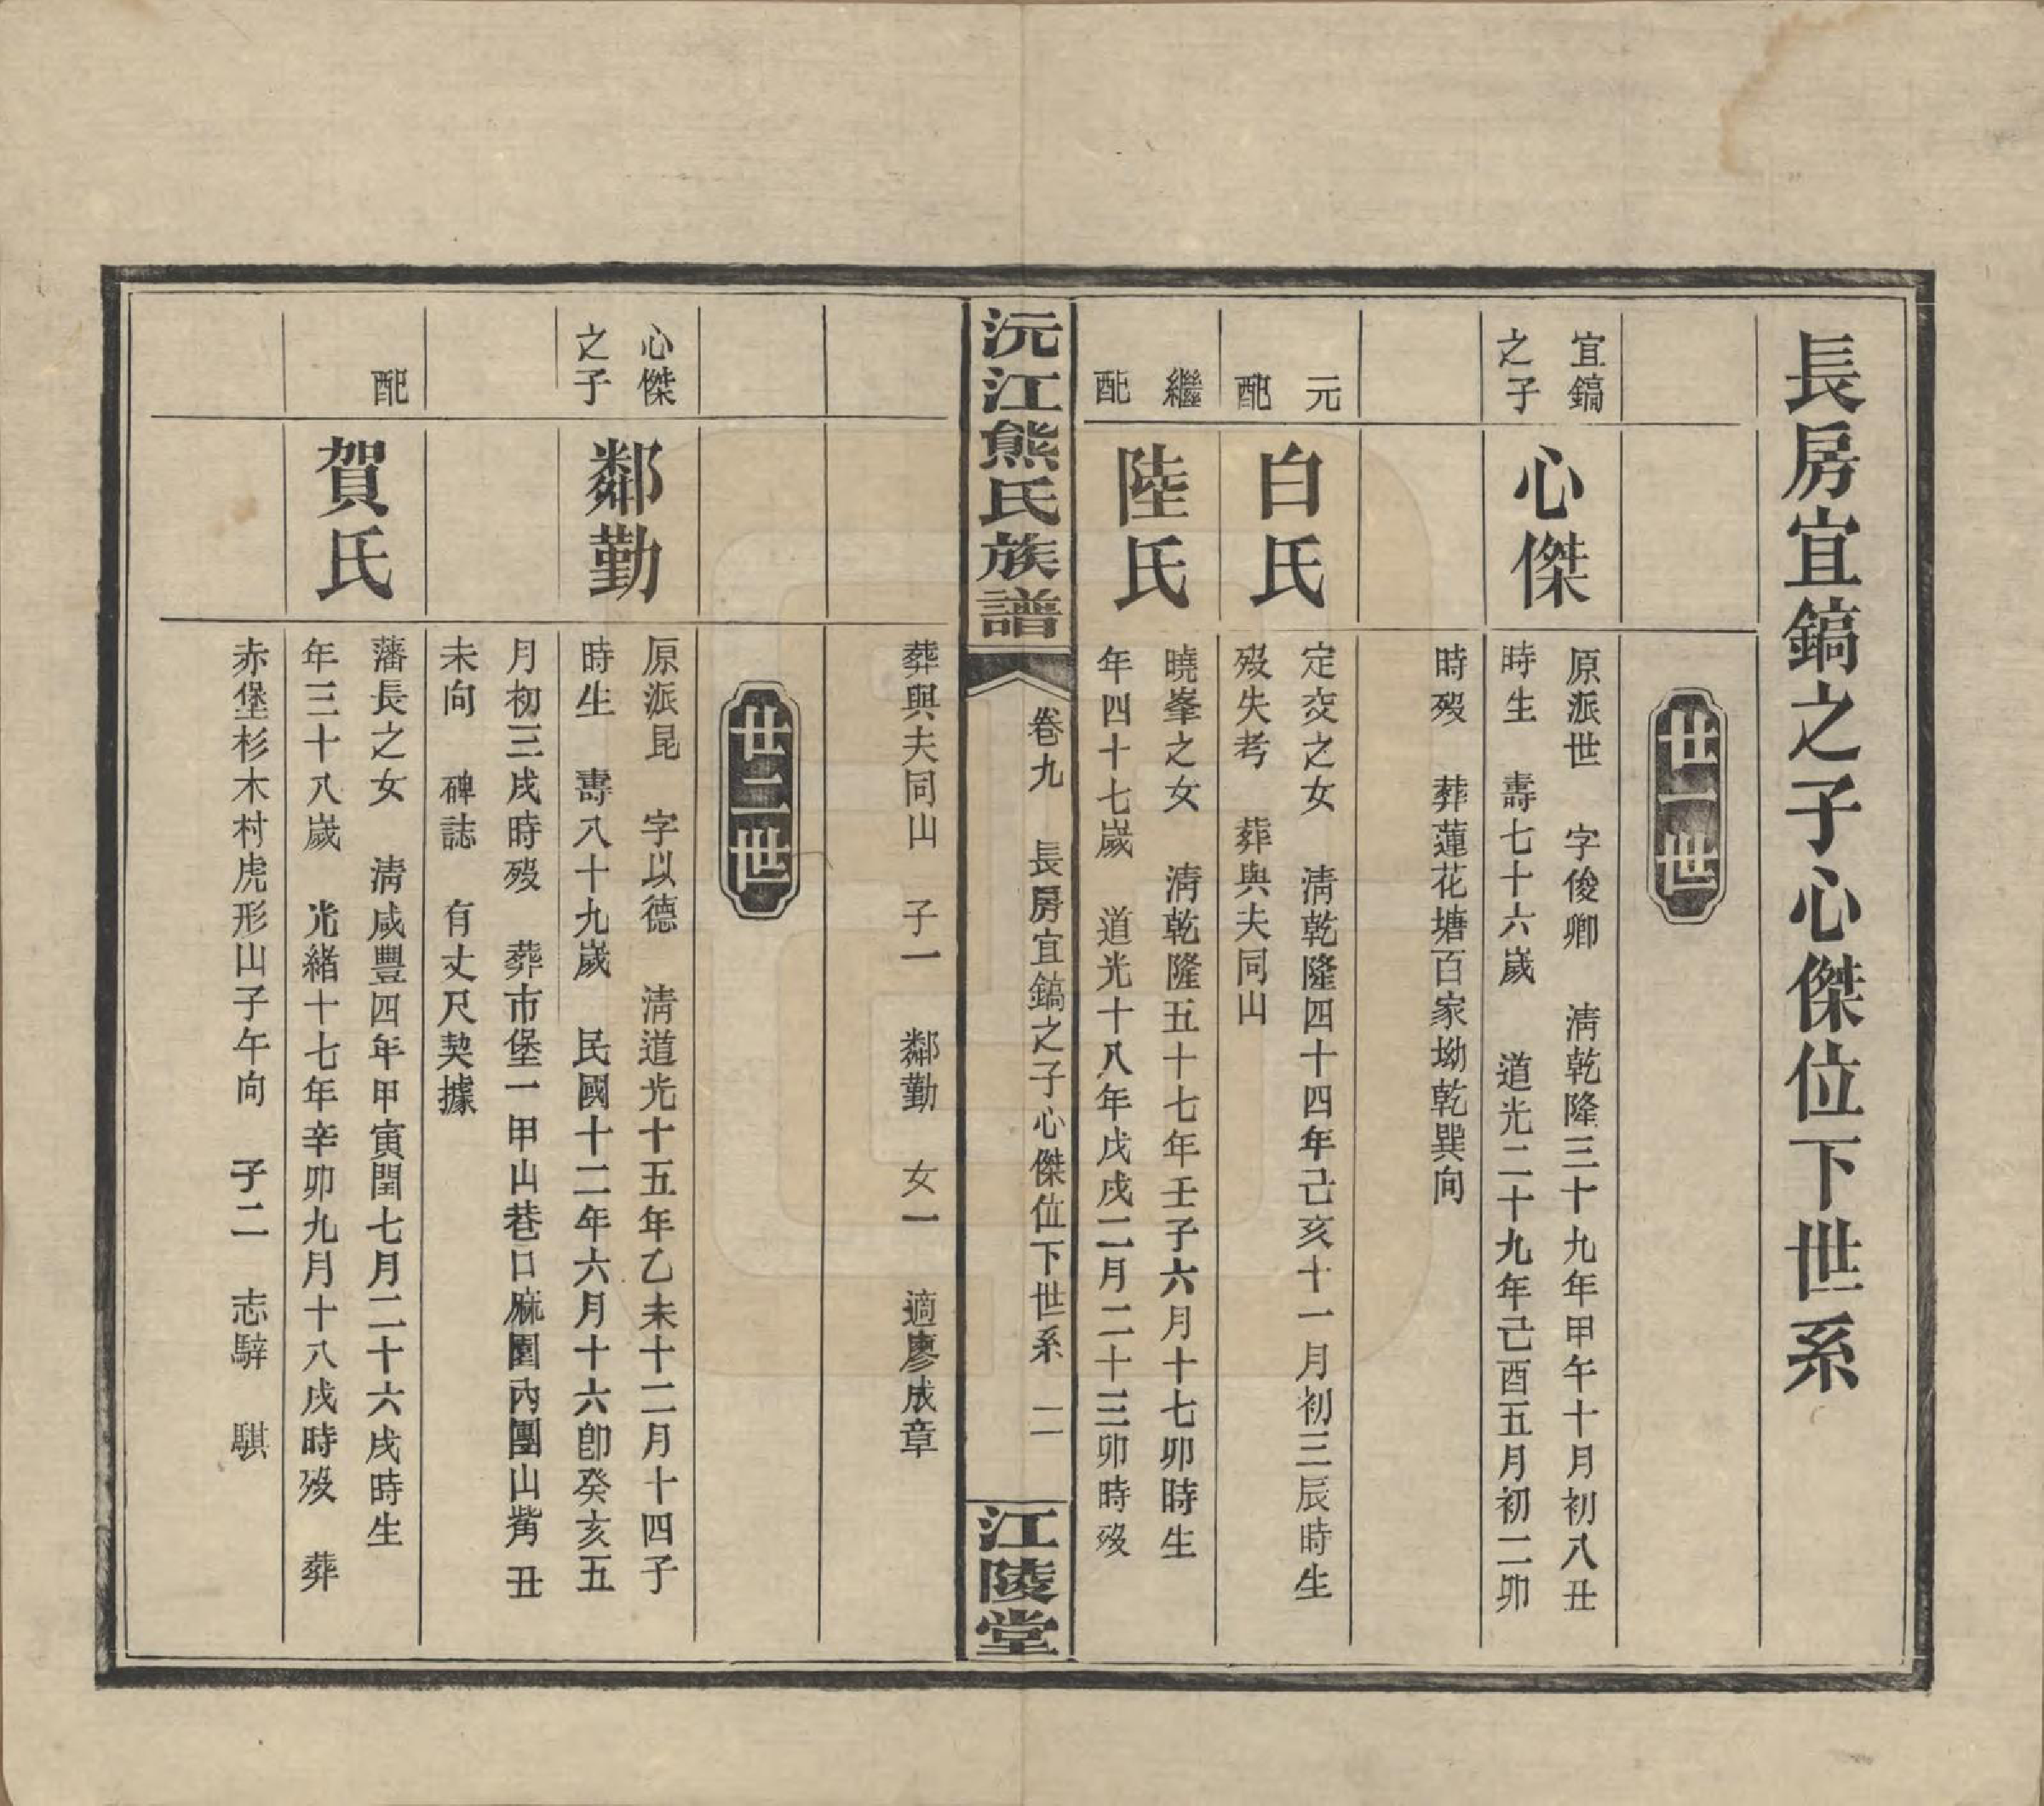 長房宜鎬之子心傑位下世系
廿一世
宜鎬
之子
心傑
原派世　字俊卿　清乾隆三十九年甲午十月初八丑
時生　壽七十六歲　道光二十九年己酉五月初二卯
時歿　葬蓮花塘百家坳乾巽向
元
配
白氏
定交之女　清乾隆四十四年己亥十一月初三辰時生
歿失考　葬與夫同山
繼
配
陸氏
曉峯之女　清乾隆五十七年壬子六月十七卯時生
年四十七歲　道光十八年戊戌二月二十三卯時歿
沅江熊氏族譜
卷九　長房宜鎬之子心傑位下世系　一
江陵堂
葬與夫同山　子一　鄰勤　女一　適廖成章
廿二世
心傑
之子
鄰勤
原派昆　字以德　清道光十五年乙未十二月十四子
時生　壽八十九歲　民國十二年六月十六卽癸亥五
月初三戌時歿　葬市堡一甲山巷口麻園內團山觜丑
未向　碑誌　有丈尺契據
配
賀氏
藩長之女　清咸豐四年甲寅閏七月二十六戌時生
年三十八歲　光緒十七年辛卯九月十八戌時歿　葬
赤堡杉木村虎形山子午向　子二　志騂　騏